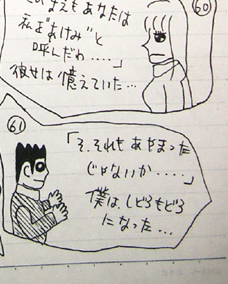 60
このまえもあなたは
私を"あけみ"と
呼んだわ・・・・」
彼女は憶えていた…
61
「そ、それもあやまった
じゃないか・・・・・」
僕は、しどろもどろ
になった…